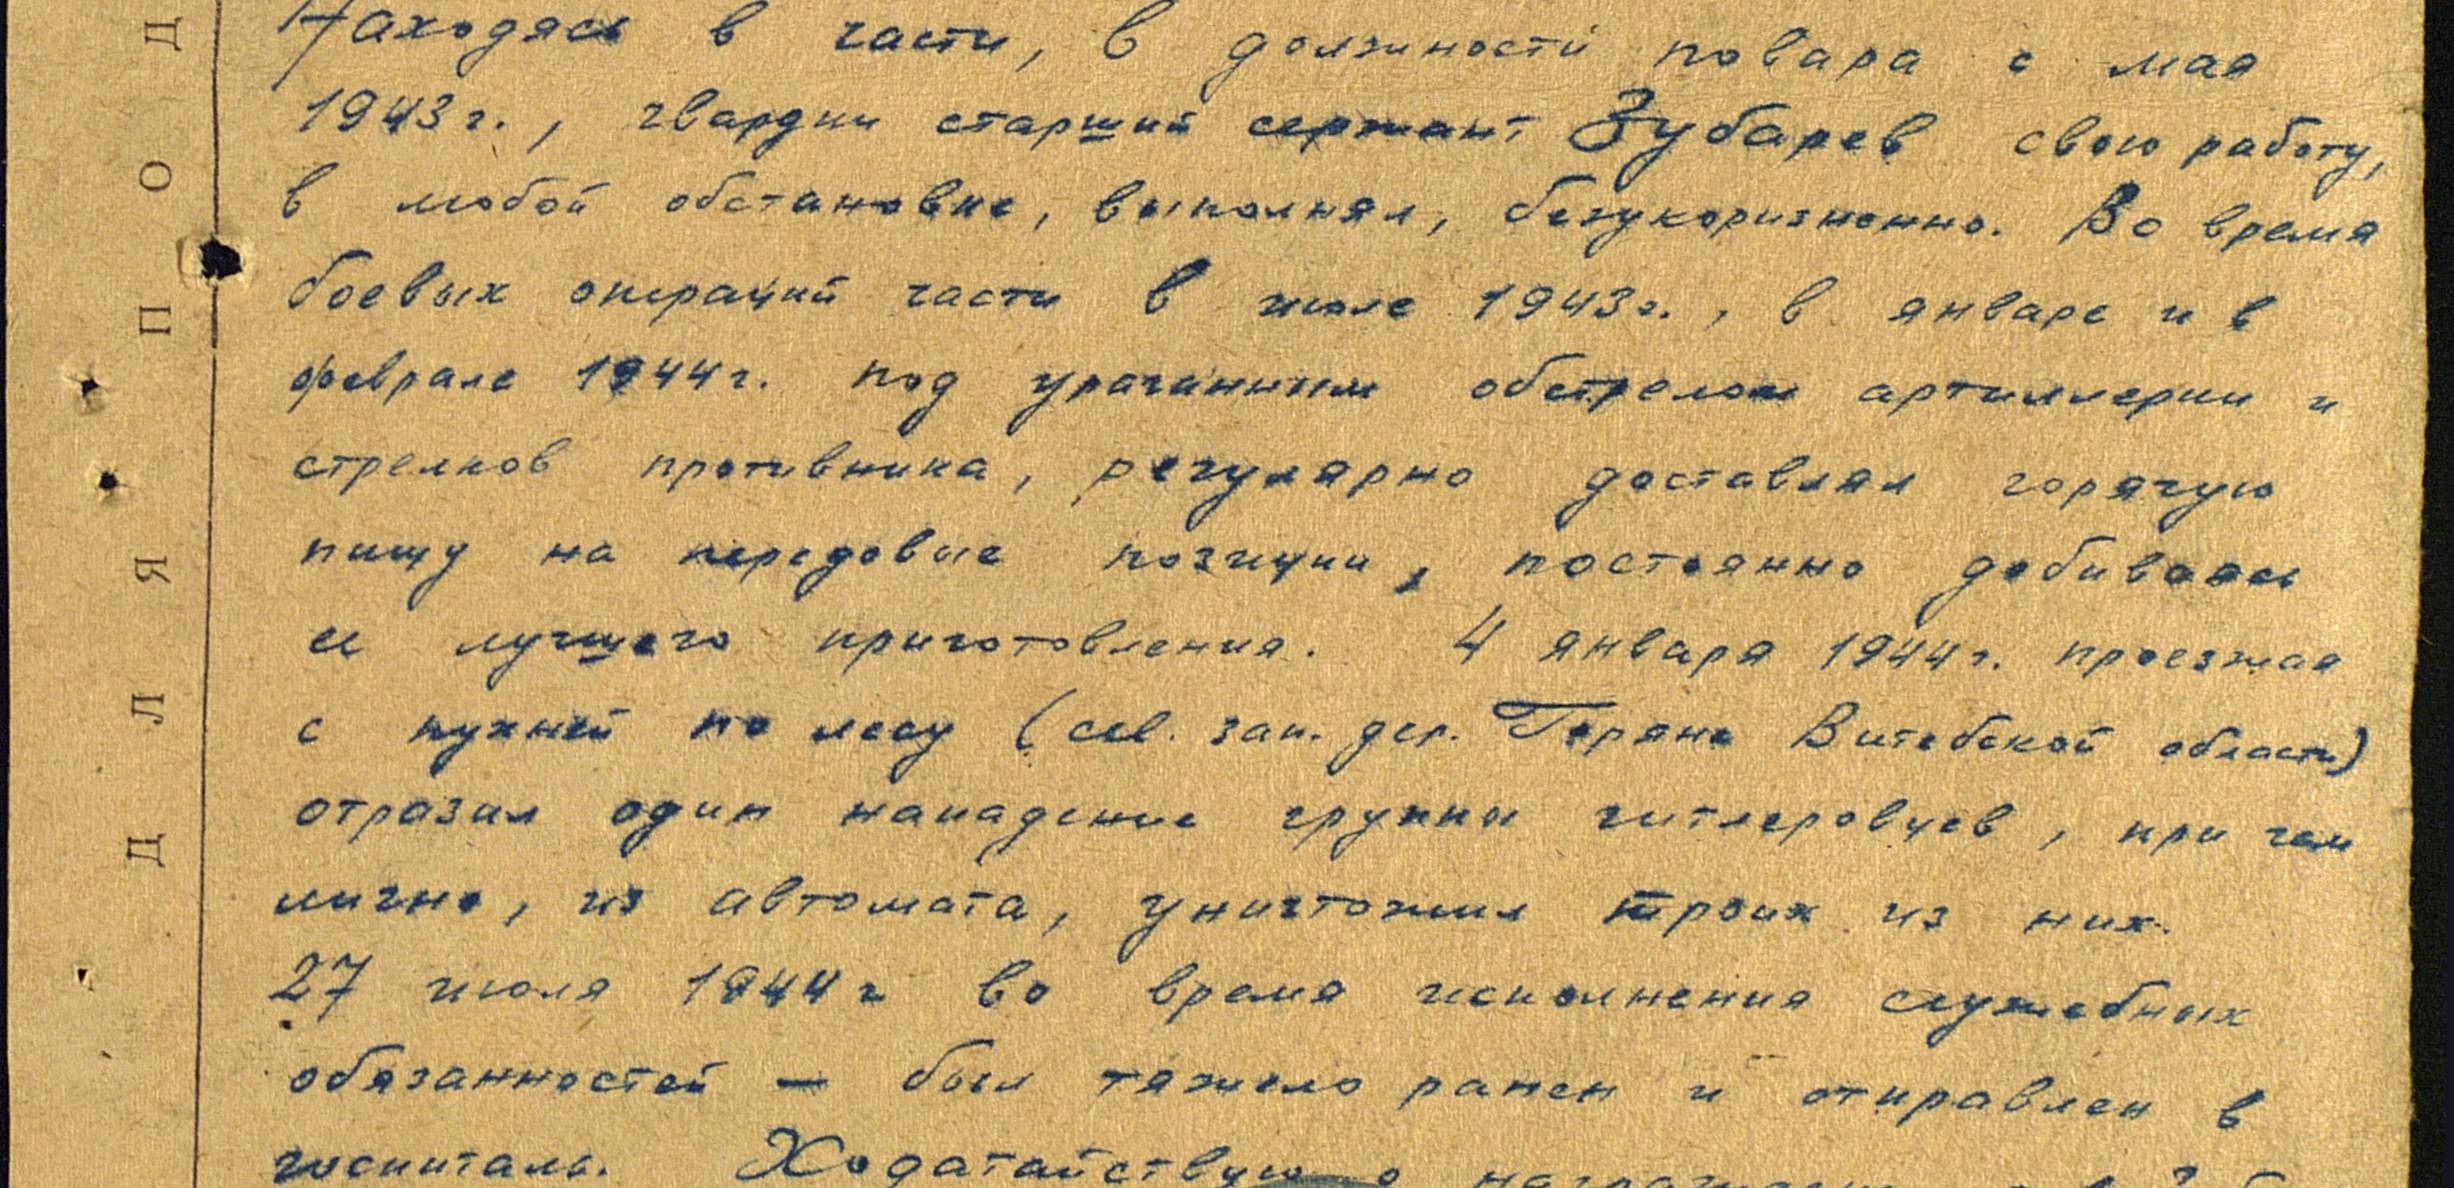 Находясь в части, в должности повара с мая
1943г., гвардии старший сержант Зубарев свою работу,
в любой обстановке, выполнял, безукоризненно. Во время
боевых операций части в июле 1943г., в январе и в
феврале 1944г. под ураганным обстрелом артиллерии и
стрелков противника, регулярно доставлял горячую
пищу на передовые позиции, постоянно добиваясь
ее лучшего приготовления. 4 января 1944г. проезжая
с кухней по лесу (сев. зап. дер. Горяне Витебской области)
отразил один нападение группы гитлеровцев, при чем
лично, из автомата, уничтожил троих из них.
27 июля 1944г во время исполнения служебных
обязанностей – был тяжело ранен и отправлен в
госпиталь. Ходатайствую о
ДЛЯ ПОД